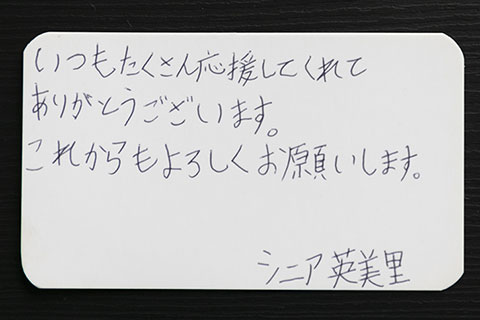 いつもたくさん応援してくれて
ありがとうございます。
これからもよろしくお願いします。
シニア英美里